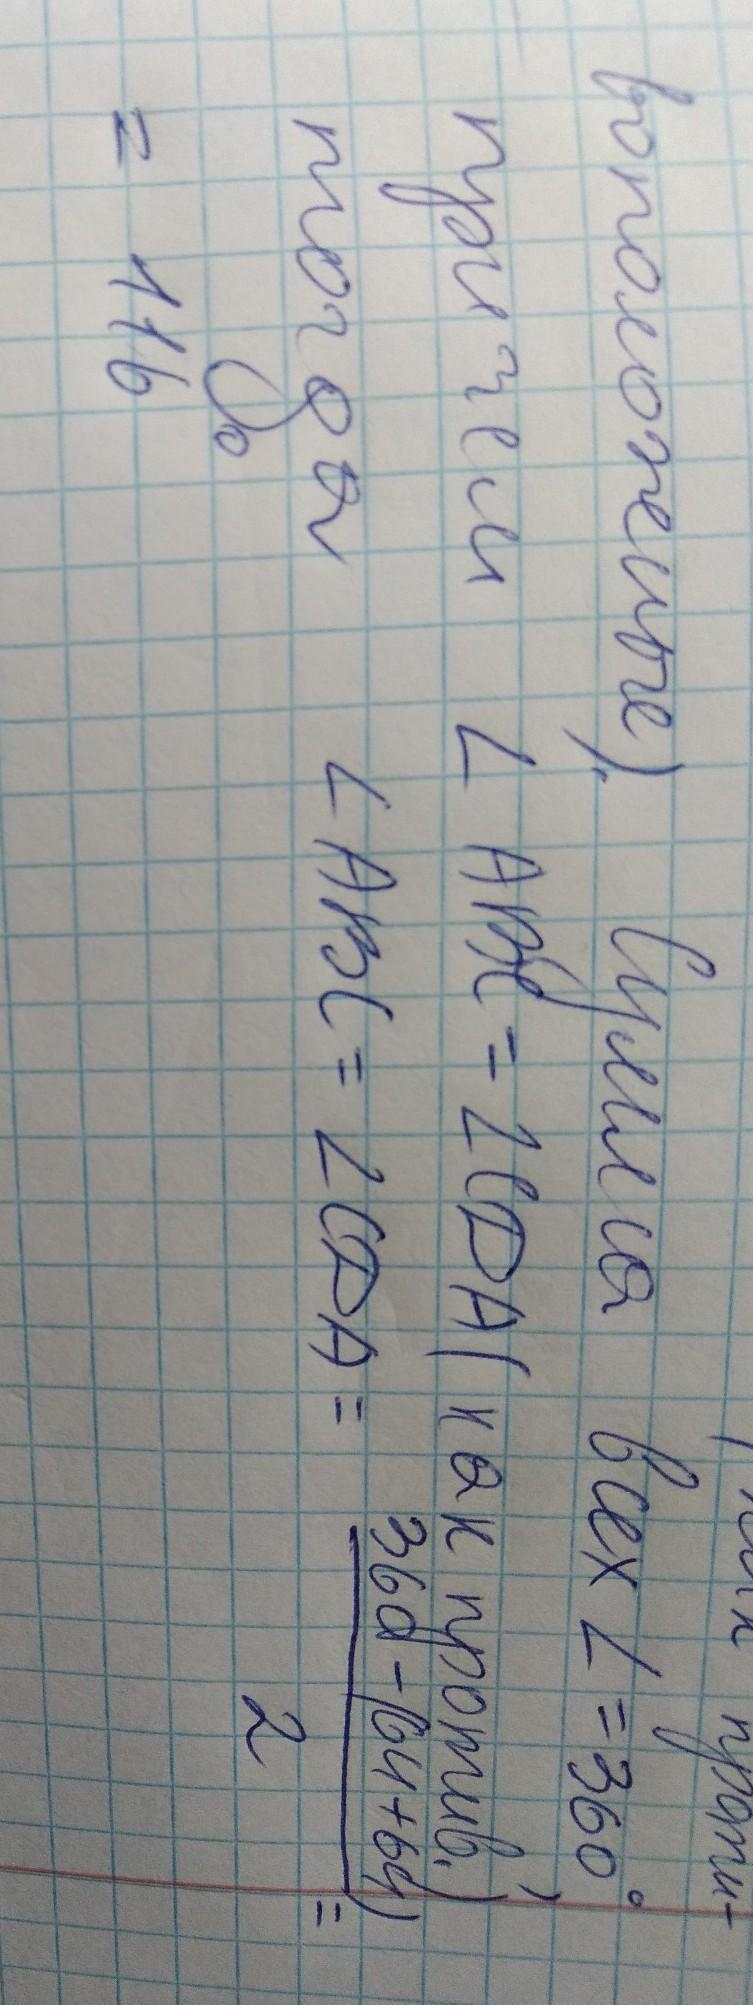 как проти-
воположные). Сумма всех ∠ = 360°,
причем ∠ABC = ∠CDA (как против.)
тогда ∠ABC = ∠CDA = (360 - (64+64))/2 =
= 116°